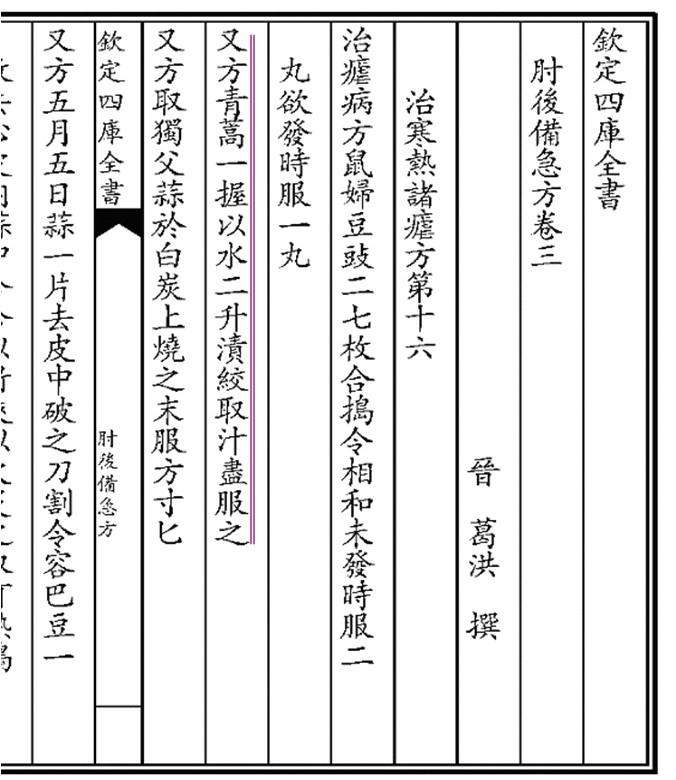 欽定四庫全書
肘後備急方卷三
晉 葛洪 撰
治寒熱諸瘧方第十六
治瘧病方鼠婦豆豉二七枚合搗令相和未發時服二
丸欲發時服一丸
又方青蒿一握以水二升漬絞取汁盡服之
又方取獨父蒜於白炭上燒之末服方寸匕
欽定四庫全書
肘後備急方
又方五月五日蒜一片去皮中破之刀割令容巴豆一